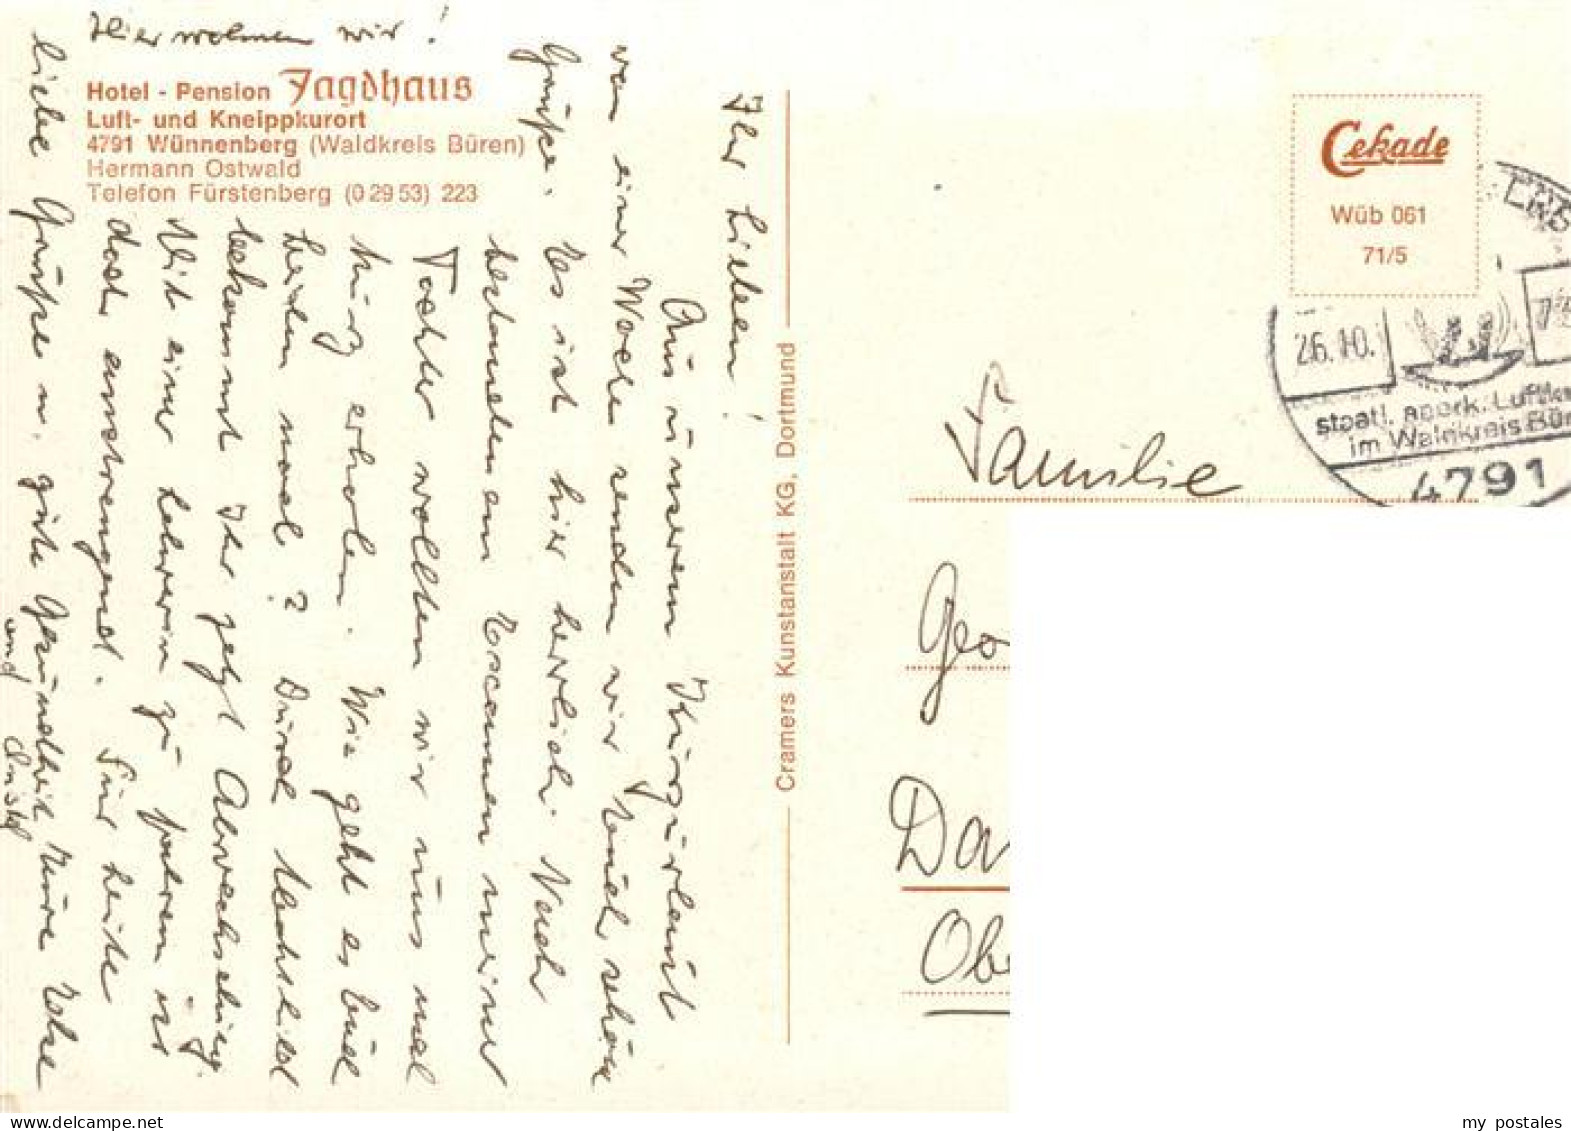 Hier wohnen wir!
Hotel - Pension Jagdhaus
Luft- und Kneippkurort
4791 Wünnenberg (Waldkreis Büren)
Hermann Ostwald
Telefon Fürstenberg (0 29 53) 223
Ihr Lieben!
Aus unserem Kurzurlaub
von einer Woche senden wir Euch schöne
Grüße. Es ist hier herrlich. Nach
bestandenem Examen unserer
Tochter wollten wir uns mal
kurz erholen. Wie geht es Euch
beiden
bekommt Ihr jetzt Abwechselung.
Mit einer Lehrerin zu fahren ist
doch anstrengend. Für heute
liebe Grüße u. gute Gesundheit Eure
und
Cramers Kunstanstalt KG, Dortmund
Cekade
Wüb 061
71/5
26.10.
staatl. anerk. Luftku
im Waldkreis Bür
4791
Familie
Geo
Da
Obe
my postales